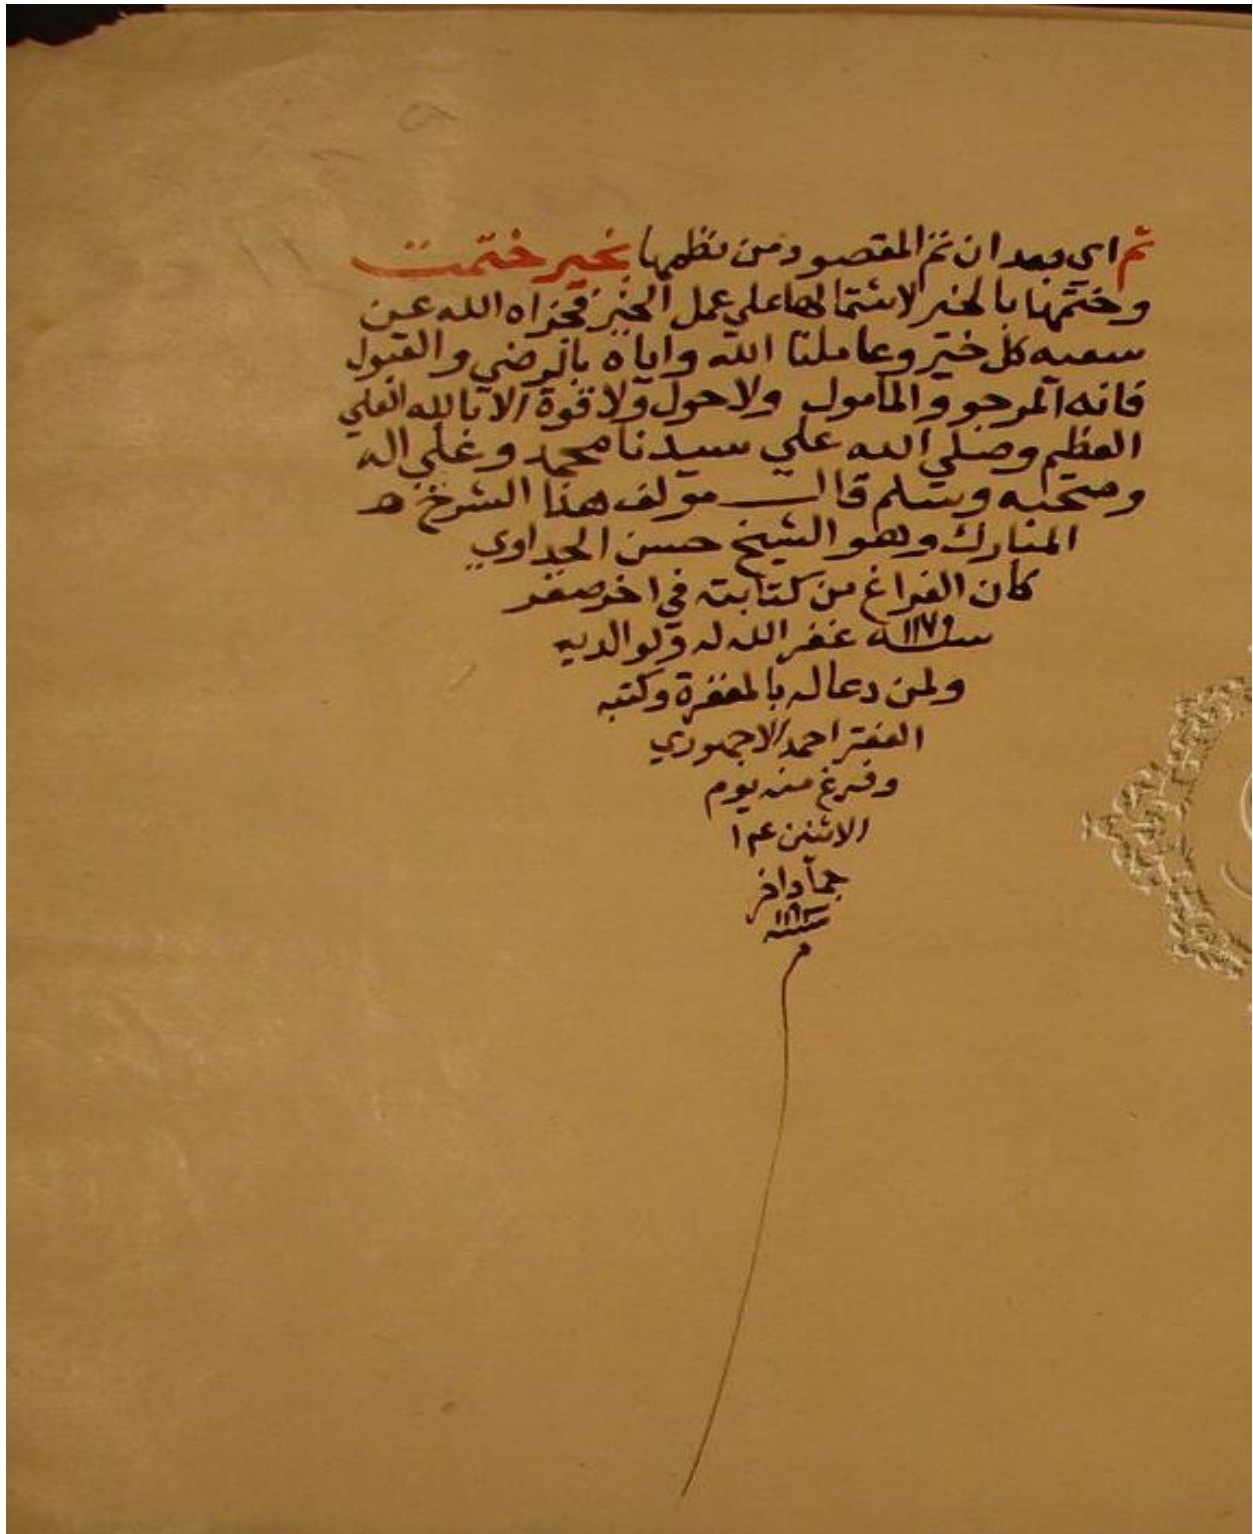 ثم اي بعد ان تم المقصود من نظمها بخير ختمت
وختمها بالخير لاشتمالها علي عمل الخير فجزاه الله عن
سعيه كل خير وعاملنا الله واياه بالرضي والقبول
فانه المرجو والمامول ولا حول ولا قوة الا بالله العلي
العظيم وصلي الله علي سيدنا محمد وعلي اله
وصحبه وسلم قال مولف هذا الشرح
المبارك وهو الشيخ حسن الجداوي
كان الفراغ من كتابته في اخر صفر
سنه ١١٧٩ غفر الله له ولوالديه
ولمن دعا له بالمغفرة وكتبه
الفقير احمد الاجهوري
وفرغ منه يوم
الاثنين
جماد اخر
سنه